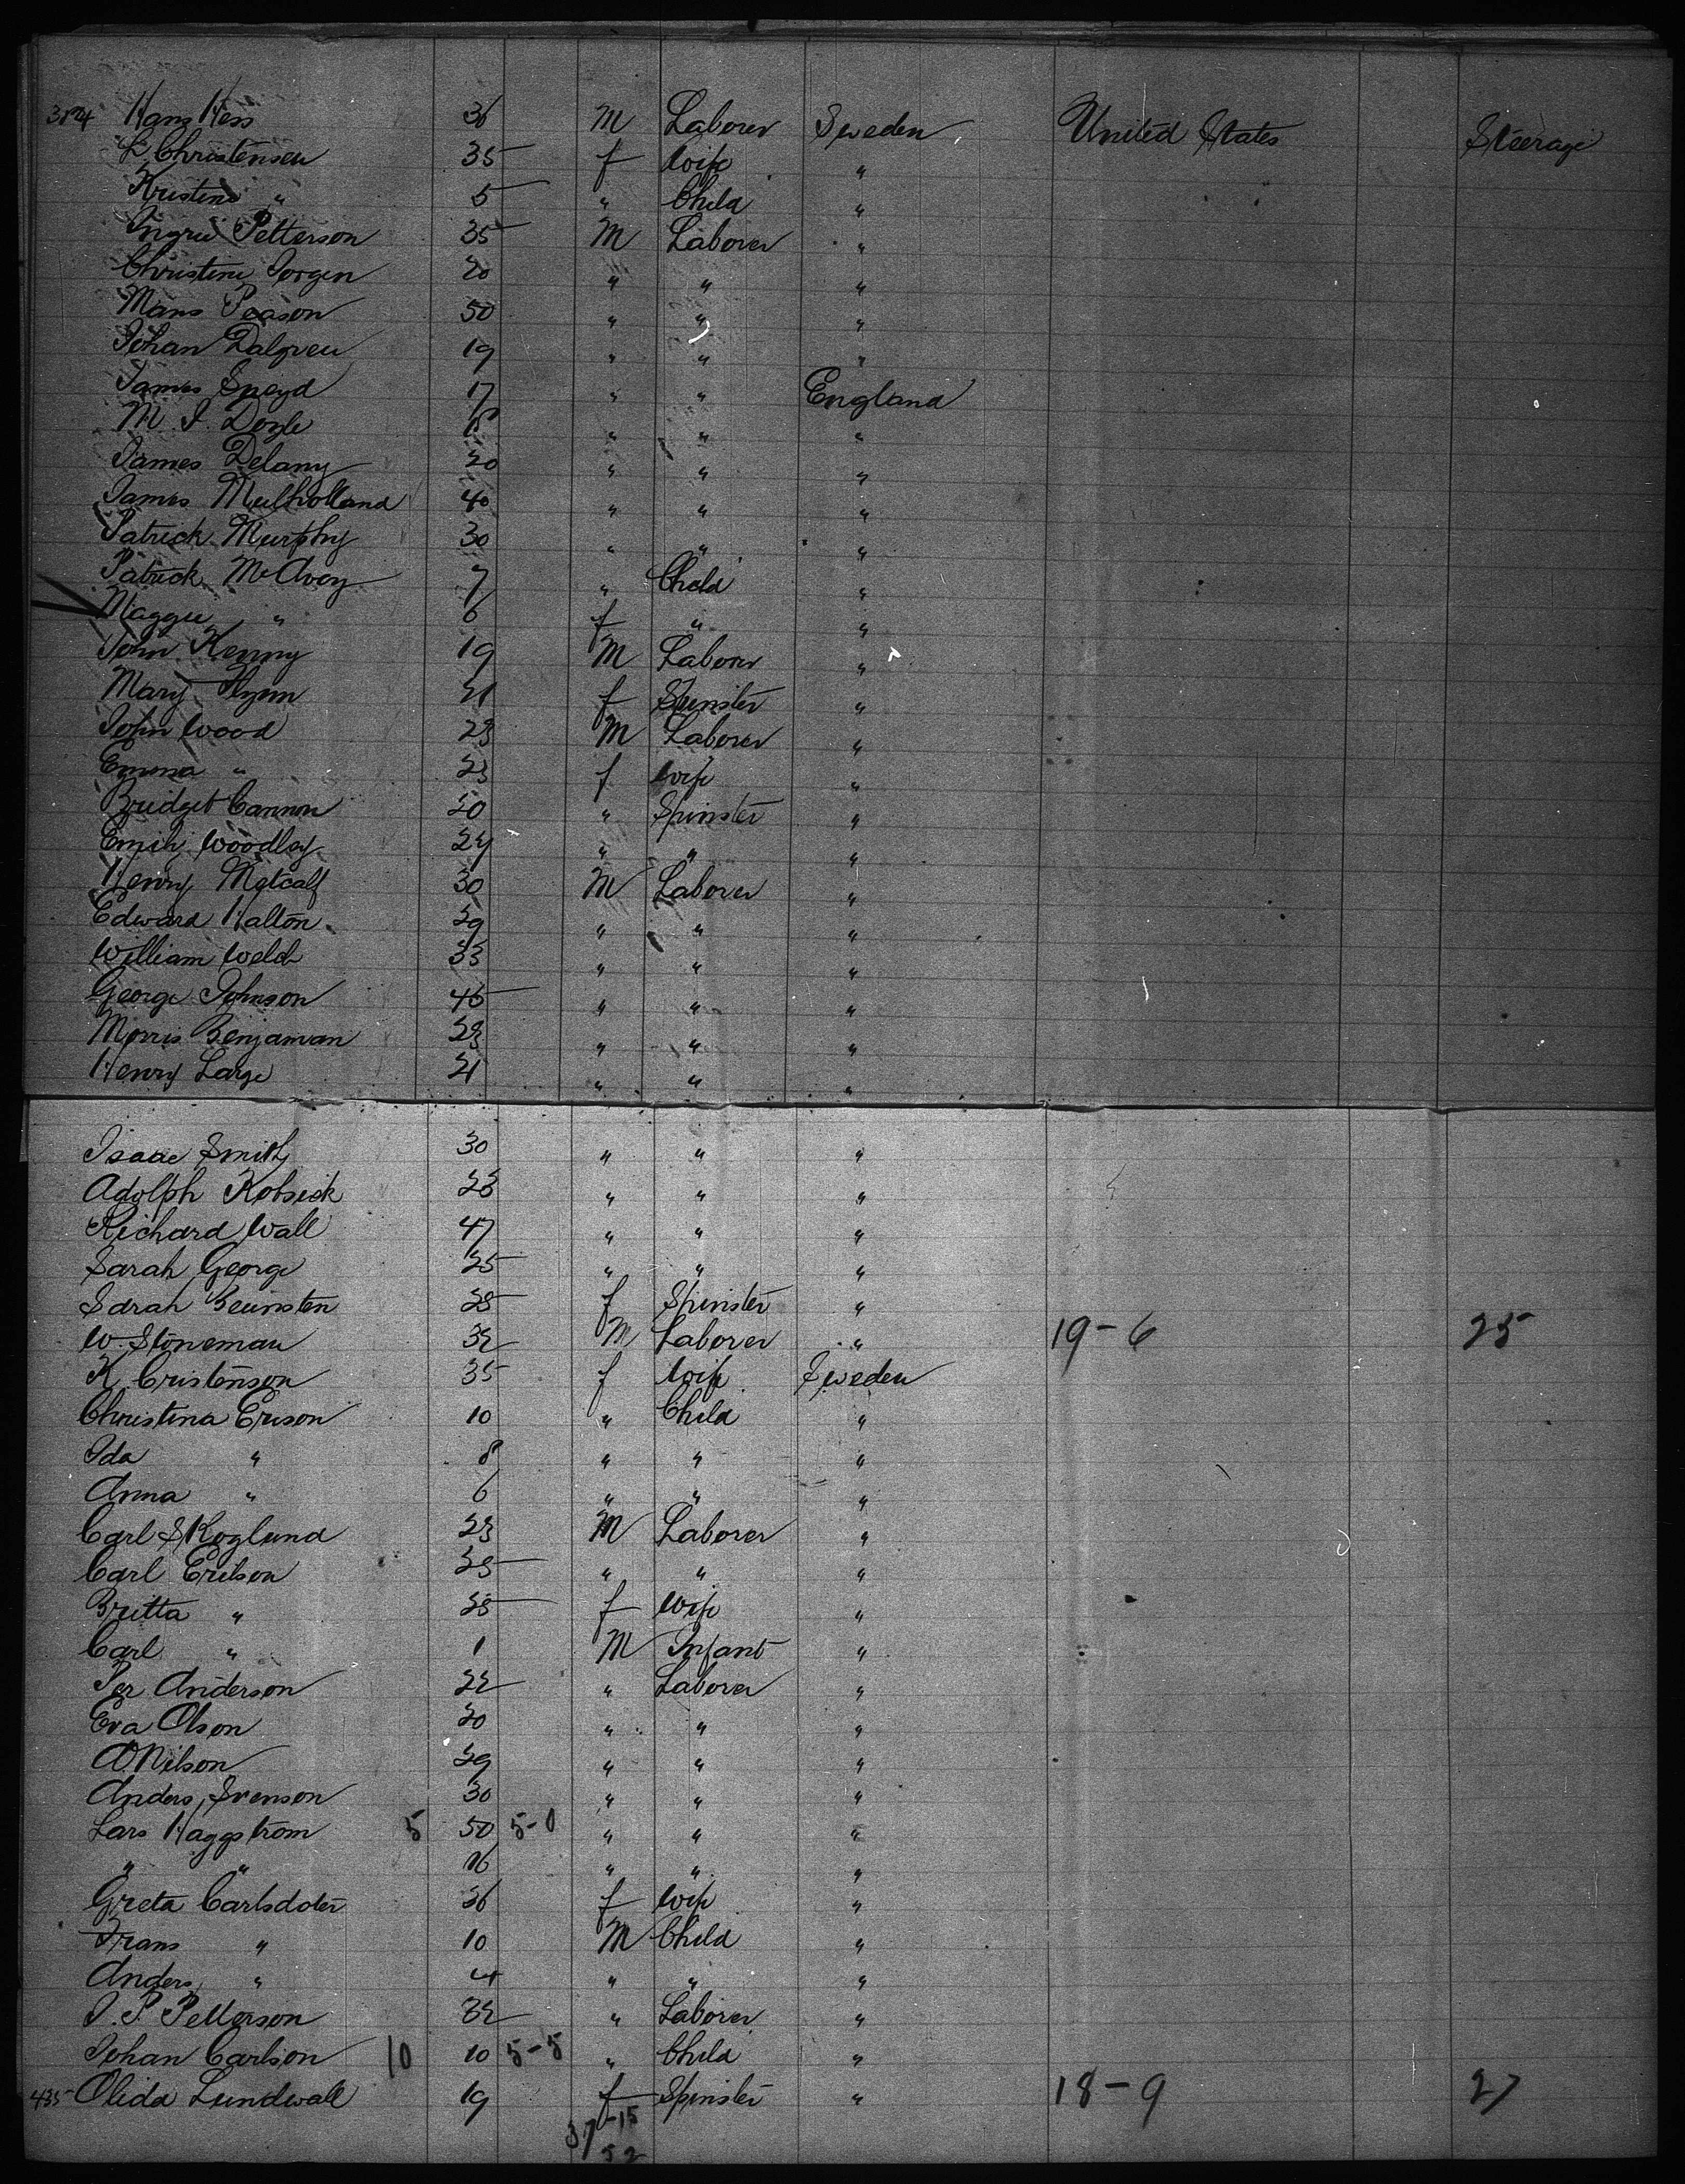 384 Hans Hess 36 M Laborer Sweden United States Steerage
L. Christensen 35 f Wife "
Kristine " 5 " Child "
Ingrie Petterson 35 M Laborer "
Christine Jorgen 20 " " "
Mans Peason 50 " " "
Johan Dalgren 19 " " "
James 17 " " England
M. J. Doyle 18 " " "
James Delany 20 " " "
James Mulholland 40 " " "
Patrick Murphy 30 " " "
Patrick McAvoy 7 " Child "
Maggie " 6 f " "
John Kenny 19 M Laborer "
Mary Flynn 21 f Spinster "
John Wood 23 M Laborer "
Emma " 23 f Wife "
Bridget Cannon 20 " Spinster "
Emily Woodley 24 " " "
Henry Metcalf 30 M Laborer "
Edward Halton 29 " " "
William Welch 33 " " "
George Johnson 45 " " "
Morris Benjaman 23 " " "
Henry Large 21 " " "
Isaac Smith 30 " " "
Adolph Kobsick 23 " " "
Richard Wall 47 " " "
Sarah George 25 " " "
Sarah Beinsten 25 f Spinster "
W. Stoneman 32 M Laborer " 19-6 25
K Cristenson 35 f Wife Sweden
Christina Erison 10 " Child "
Ida " 8 " " "
Anna " 6 " " "
Carl Skoglund 23 M Laborer "
Carl Erikson 25 " " "
Britta " 25 f Wife "
Carl " 1 M Infant "
Per Anderson 22 " Laborer "
Eva Olson 20 " " "
A Nilson 29 " " "
Anders Svenson 30 " " "
Lars Haggstrom 5 50 5-0 " " "
" " 16 " " "
Greta Carlsdoter 36 f Wife "
Frans " 10 M Child "
Anders " 4 " " "
J. P. Petterson 32 " Laborer "
Johan Carlson 10 10 5-5 " Child "
435 Olida Lundwall 19 f Spinster " 18-9 27
37-15
52